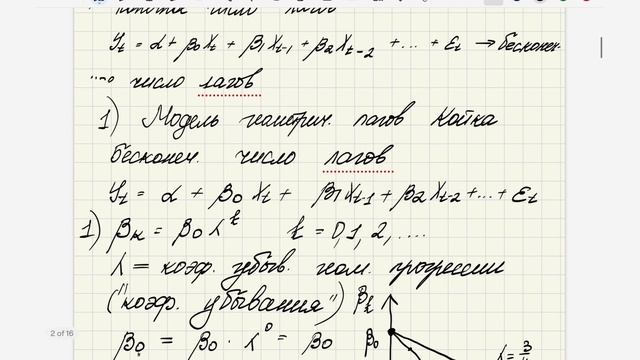 конечное число лагов
Yt = α + β0 Xt + β1 Xt-1 + β2 Xt-2 + ... + εt → бесконеч-
ное число лагов
1) Модель геометрич. лагов Койка
бесконеч. число лагов
Yt = α + β0 Xt + β1 Xt-1 + β2 Xt-2 + ... + εt
1) βk = β0 λ^k k = 0, 1, 2, ....
λ = коэф. убыв. геом. прогрессии
("коэф. убывания") βk
β0 = β0 · λ^0 = β0 β0 λ = 3/4
2 of 16